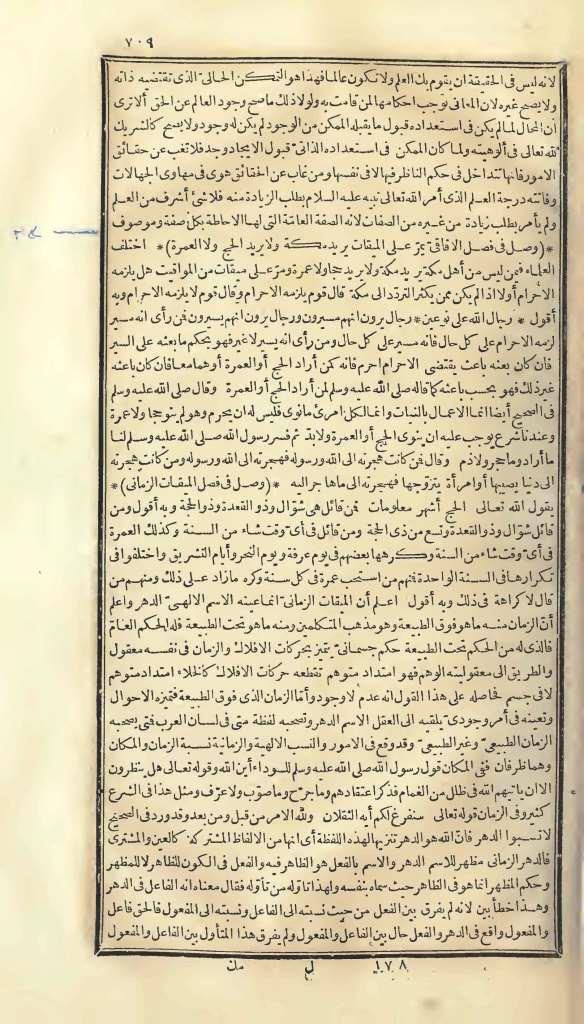 ٧٠٩
لانه ليس فى الحقيقة ان يقوم بك العلم ولا تكون عالما فهذا هو التمكن الحالىّ الذى تقتضيه ذاته
ولا يصح غيره لان المعانى توجب احكامها لمن قامت به ولولا ذلك ما صح وجود العالم عن الحق ألا ترى
أن المحال لما لم يكن فى استعداده قبول ما يقبله الممكن من الوجود لم يكن له وجود ولا يصح كالشريك
لله تعالى فى ألوهيته ولما كان الممكن فى استعداده الذاتىّ قبول الايجاد وجد فلا تغب عن حقائق
الامور فانها تتداخل فى حكم الناظر فيها لا فى نفسها ومن غاب عن الحقائق هوى فى مهاوى الجهالات
وفاتته درجة العلم الذى أمر الله تعالى نبيه عليه السلام بطلب الزيادة منه فلا شئ أشرف من العلم
ولم يأمر بطلب زيادة من غيره من الصفات لانه الصفة العامّة التى لها الاحاطة بكل صفة وموصوف
* (وصل فى فصل الآفاقىّ يمرّ على الميقات يريد مكة ولا يريد الحج ولا العمرة) * اختلف
العلماء فيمن ليس من أهل مكة يريد مكة ولا يريد حجا ولا عمرة ومرّ على ميقات من المواقيت هل يلزمه
الاحرام أولا اذا لم يكن ممن يكثر التردّد الى مكة فقال قوم يلزمه الاحرام وقال قوم لا يلزمه الاحرام وبه
أقول * رجال الله على نوعين * رجال يرون انهم مسيرون ورجال يرون انهم يسيرون فمن رأى انه مسير
لزمه الاحرام على كل حال فانه مسير على كل حال ومن رأى انه يسير لا غير فهو بحكم ما بعثه على السير
فان كان بعثه باعث يقتضى الاحرام احرم فانه كمن أراد الحج أو العمرة أو هما معا فان كان باعثه
غير ذلك فهو بحسب باعثه كما قاله صلى الله عليه وسلم لمن أراد الحج أو العمرة وقال صلى الله عليه وسلم
فى الصحيح أيضا انما الاعمال بالنيات وانما لكل امرئ ما نوى فليس له ان يحرم وهو لم ينو حجا ولا عمرة
وعندنا شرع يوجب عليه ان ينوى الحج أو العمرة ولا بدّ ثم فسر رسول الله صلى الله عليه وسلم لنا
ما أراد وما حجر ولا ذم وقال فمن كانت هجرته الى الله ورسوله فهجرته الى الله ورسوله ومن كانت هجرته
الى دنيا يصيبها أو امرأة يتزوجها فهجرته الى ما هاجر اليه * (وصل فى فصل الميقات الزمانى) *
يقول الله تعالى الحج أشهر معلومات فمن قائل هى شوّال وذو القعدة وذو الحجة وبه أقول ومن
قائل شوّال وذو القعدة وتسع من ذى الحجة ومن قائل فى أىّ وقت شاء من السنة وكذلك العمرة
فى أىّ وقت شاء من السنة وكرهها بعضهم فى يوم عرفة ويوم النحر وأيام التشريق واختلفوا فى
تكرارها فى السنة الواحدة فمنهم من استحب عمرة فى كل سنة وكره ما زاد على ذلك ومنهم من
قال لا كراهة فى ذلك وبه أقول اعلم أن الميقات الزمانىّ انما عينه الاسم الالهىّ الدهر واعلم
أنّ الزمان منه ما هو فوق الطبيعة وهو مذهب المتكلمين ومنه ما هو تحت الطبيعة فله الحكم العامّ
فالذى له من الحكم تحت الطبيعة حكم جسمانىّ يتميز بحركات الافلاك والزمان فى نفسه معقول
والطريق الى معقوليته الوهم فهو امتداد متوهم تقطعه حركات الافلاك كالخلاء امتداد متوهم
لا فى جسم فحاصله على هذا القول انه عدم لا وجود وأمّا الزمان الذى فوق الطبيعة فتميزه الاحوال
وتعينه فى أمر وجودىّ يلقيه الى العقل الاسم الدهر وتصحبه لفظة متى فى لسان العرب فمتى يصحبه
الزمان الطبيعىّ وغير الطبيعىّ وقد وقع فى الامور والنسب الالهية والزمانية نسبة الزمان والمكان
وهما ظرفان ففى المكان قول رسول الله صلى الله عليه وسلم للسوداء أين الله وقوله تعالى هل ينظرون
الا ان يأتيهم الله فى ظلل من الغمام فذكر اعتقادهم وما جرّح وما صوّب ولا عرّف ومثل هذا فى الشرع
كثير وفى الزمان قوله تعالى سنفرغ لكم أيه الثقلان ولله الامر من قبل ومن بعد وقد ورد فى الصحيح
لا تسبوا الدهر فانّ الله هو الدهر تنزيها لهذه اللفظة أى انها من الالفاظ المشتركة كالعين والمشترى
فالدهر الزمانى مظهر للاسم الدهر والاسم بالفعل هو الظاهر فيه والفعل فى الكون للظاهر لا للمظهر
وحكم المظهر انما هو فى الظاهر حيث سماه بنفسه ولهذا تأوّله من تأوّله فقال معناه انه الفاعل فى الدهر
وهذا خطأ بين لانه لم يفرق بين الفعل من حيث نسبته الى الفاعل ونسبته الى المفعول فالحق فاعل
والمفعول واقع فى الدهر والفعل حال بين الفاعل والمفعول ولم يفرق هذا المتأول بين الفاعل والمفعول
١٧٨ ل مك